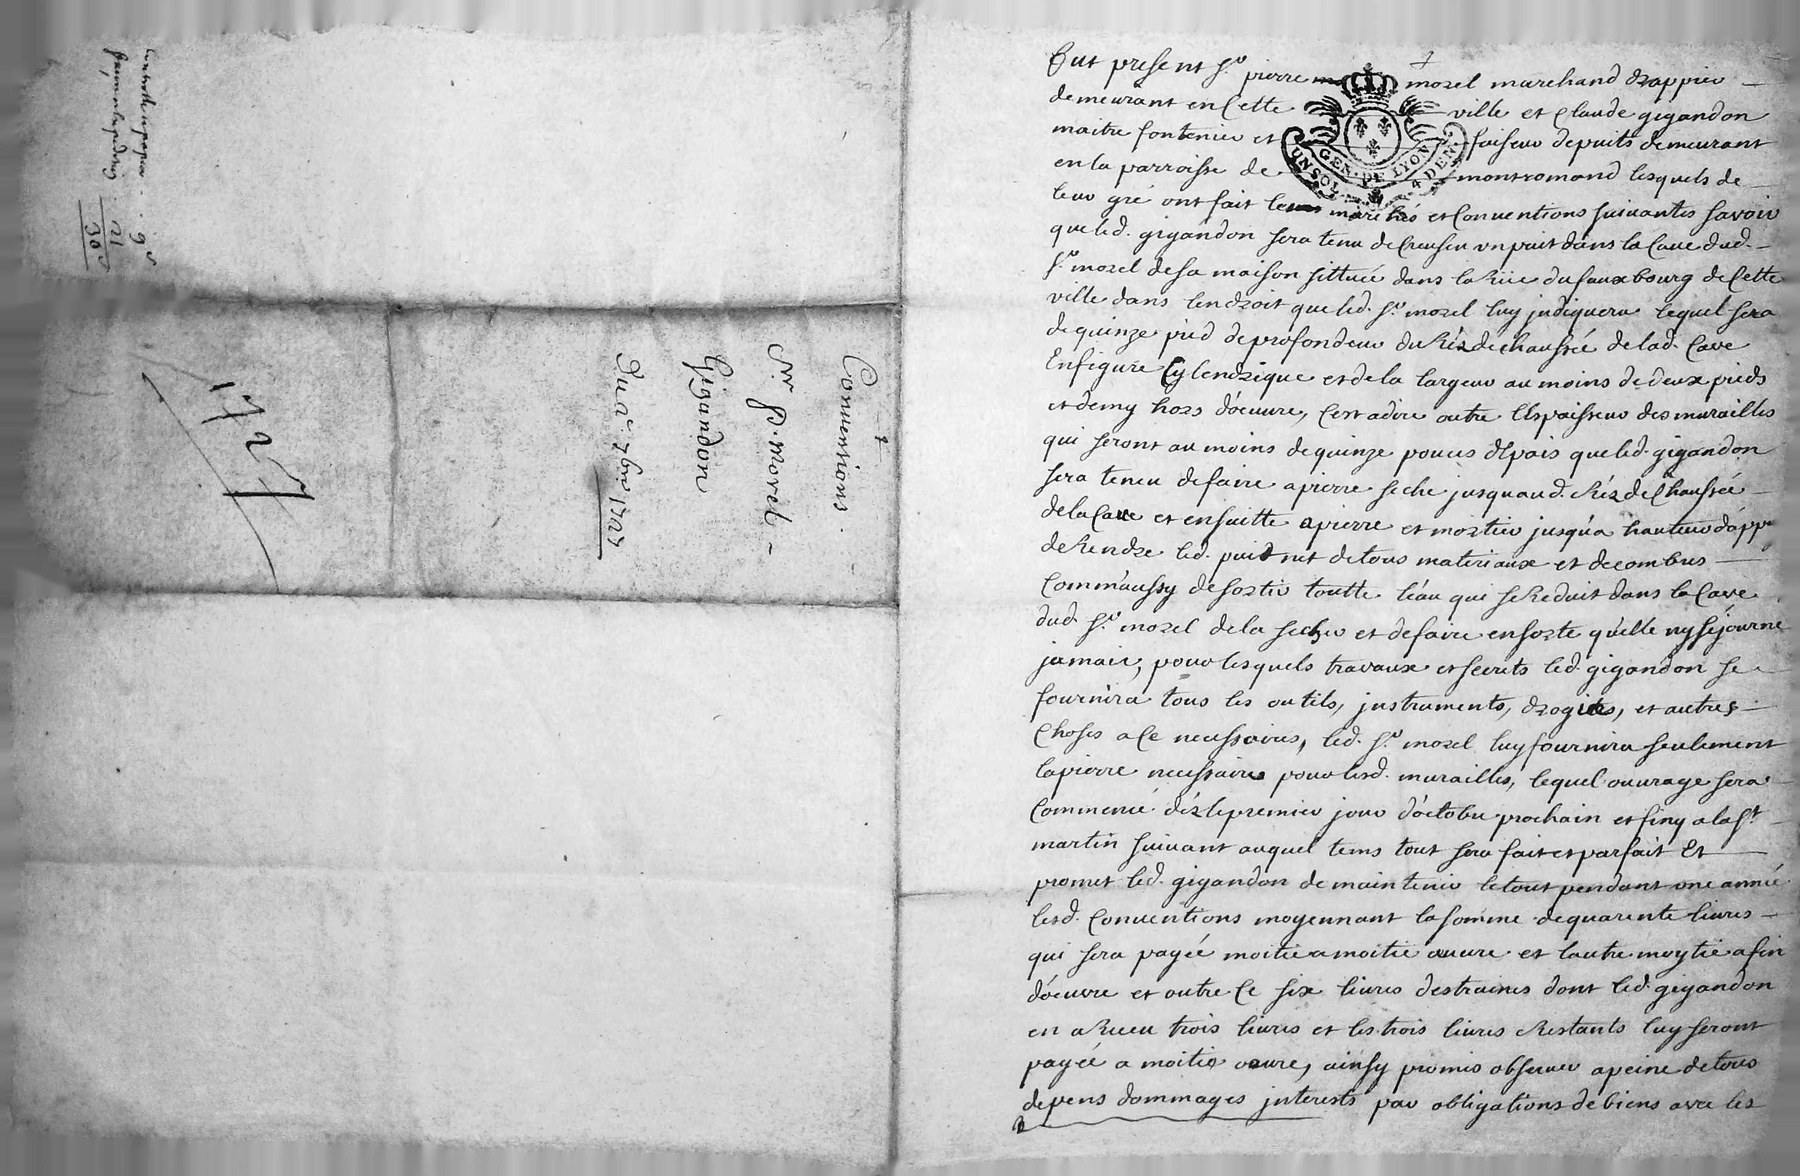 Controlle et papier . . 9 s
21
30 s
Conventions .
Sr. P. Morel –
Gigandon
Du 2e. 7bre 1727
1727
Fut present Sr. pierre morel marchand drappier
demeurant en Cette ville et Claude gigandon
maitre fontenier et faiseur de puits demeurant
en la parroisse de montromand lesquels de
leur gré ont fait les marchés et Conventions suivantes savoir
que led. gigandon sera tenu de Creuser un puit dans la Cave dud.
Sr. morel de sa maison sittuée dans la Rüe du faux bourg de Cette
ville dans lendroit que led. Sr. morel luy indiquera lequel sera
de quinze pied de profondeur du Réz de chaussée de lad. Cave
En figure Cylendrique et de la largeur au moins de deux pieds
et demy hors d'oeuvre, C'est a dire outre l'Espaisseur des murailles
qui seront au moins de quinze pouces d'Epais que led. gigandon
sera teneu de faire a pierre seche jusqu'aud. Réz de Chaussée
de la Cave et ensuitte a pierre et mortier jusqu'a hauteur d'appuy
de Rendre led. puit net de tous materiaux et decombres
Comm'aussy de sortir toutte l'eau qui se Reduit dans la Cave
dud. Sr. morel de la secher et de faire en sorte qu'elle ny séjourne
jamais, pour lesquels travaux et secrets led. gigandon se
fournira tous les outils, instruments, drogues, et autres
Choses a Ce necessaires, led. Sr. morel luy fournira seulement
la pierre necessaire pour lesd. murailles, lequel ouvrage sera
Commencé déz le premier jour d'octobre prochain et finy a la St.
martin suivant auquel tems tout sera fait et parfait Et
promet led. gigandon de maintenir le tout pendant une année
lesd. Conventions moyennant la somme de quarente livres
qui sera payée moitié a moitié œuvre et l'autre moytié a fin
d'oeuvre et outre Ce six livres d'estraines dont led. gigandon
en a Receu trois livres et les trois livres Restants luy seront
payée a moitié œuvre, ainsy promis observer a peine de tous
depens dommages interests par obligations de biens avec les